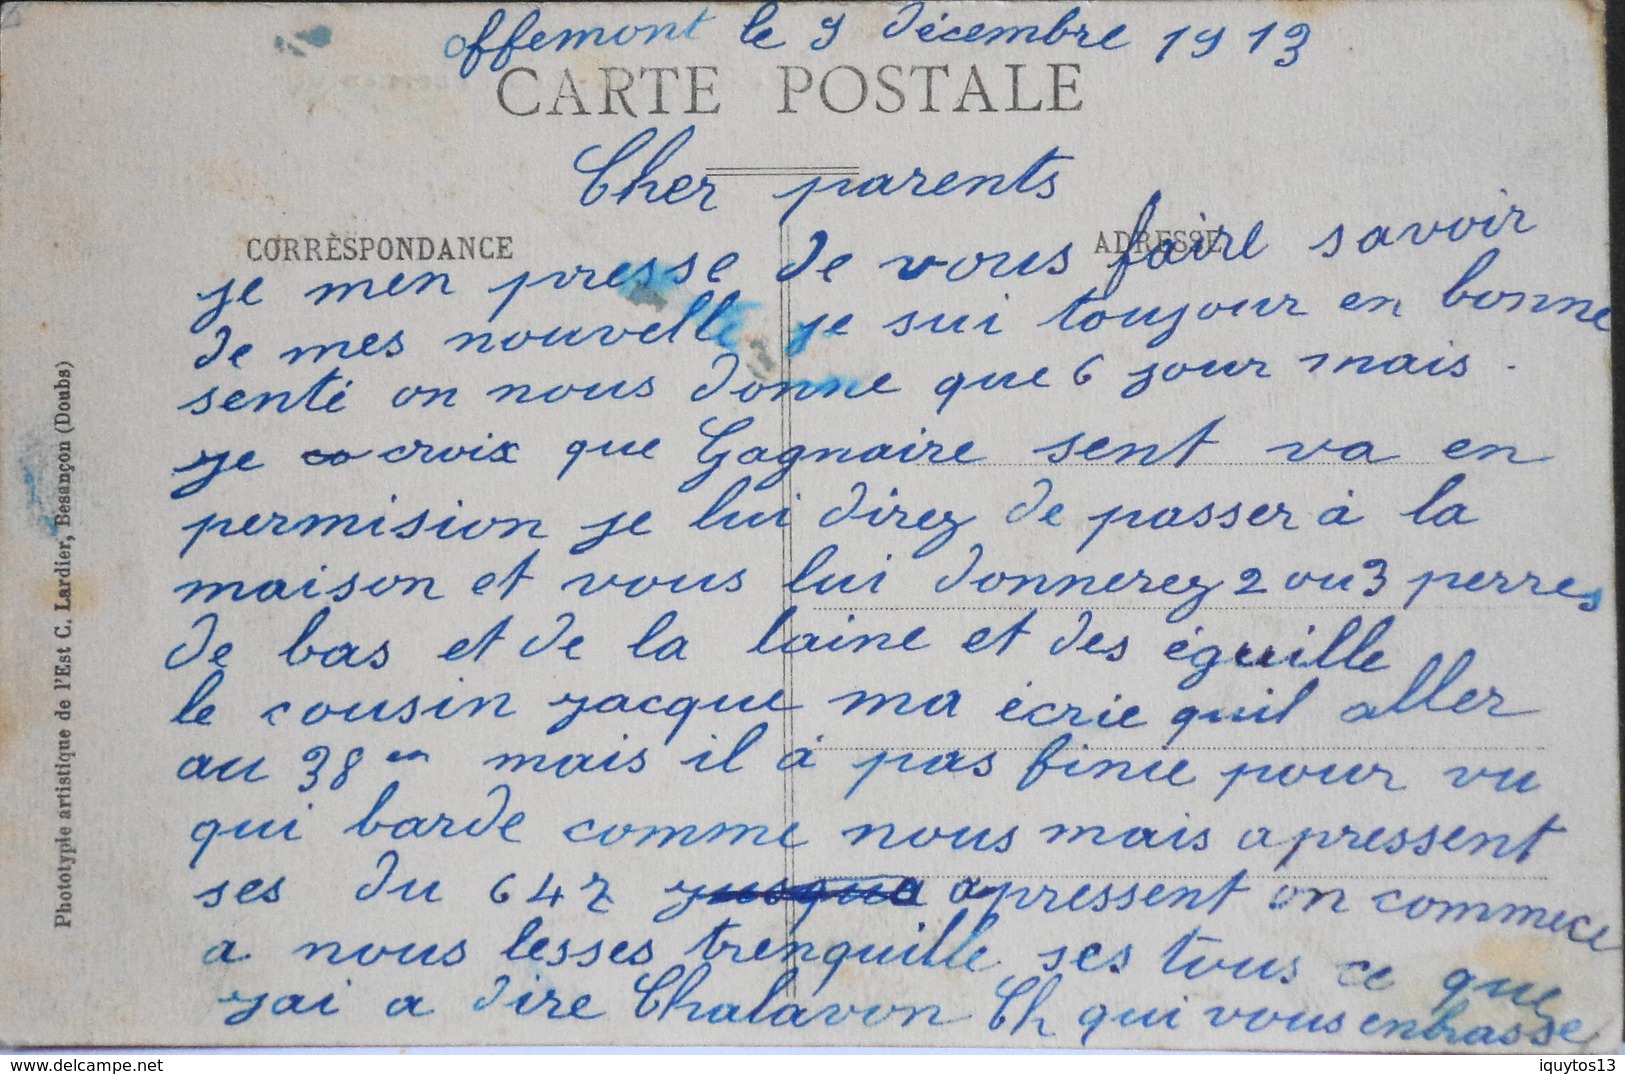 offemont le 9 décembre 1913
CARTE POSTALE
Cher parents
CORRESPONDANCE
ADRESSE
je men presse de vous faire savoir
de mes nouvelle je sui toujour en bonne
senté on nous donne que 6 jour mais.
je croix que Gagnaire sent va en
permision je lui direz de passer à la
maison et vous lui donnerez 2 ou 3 perres
de bas et de la laine et des éguille
le cousin jacque ma écrie quil aller
au 38 en mais il à pas finie pour vu
qui barde comme nous mais apressent
ses du 647 jusqua apressent on commece
a nous lesses trenquille ses tous ce que
jai a dire Chalavon Ch qui vous enbrasse
Phototypie artistique de l'Est C. Lardier, Besançon (Doubs)
http://www.delcampe.net
iquytos13